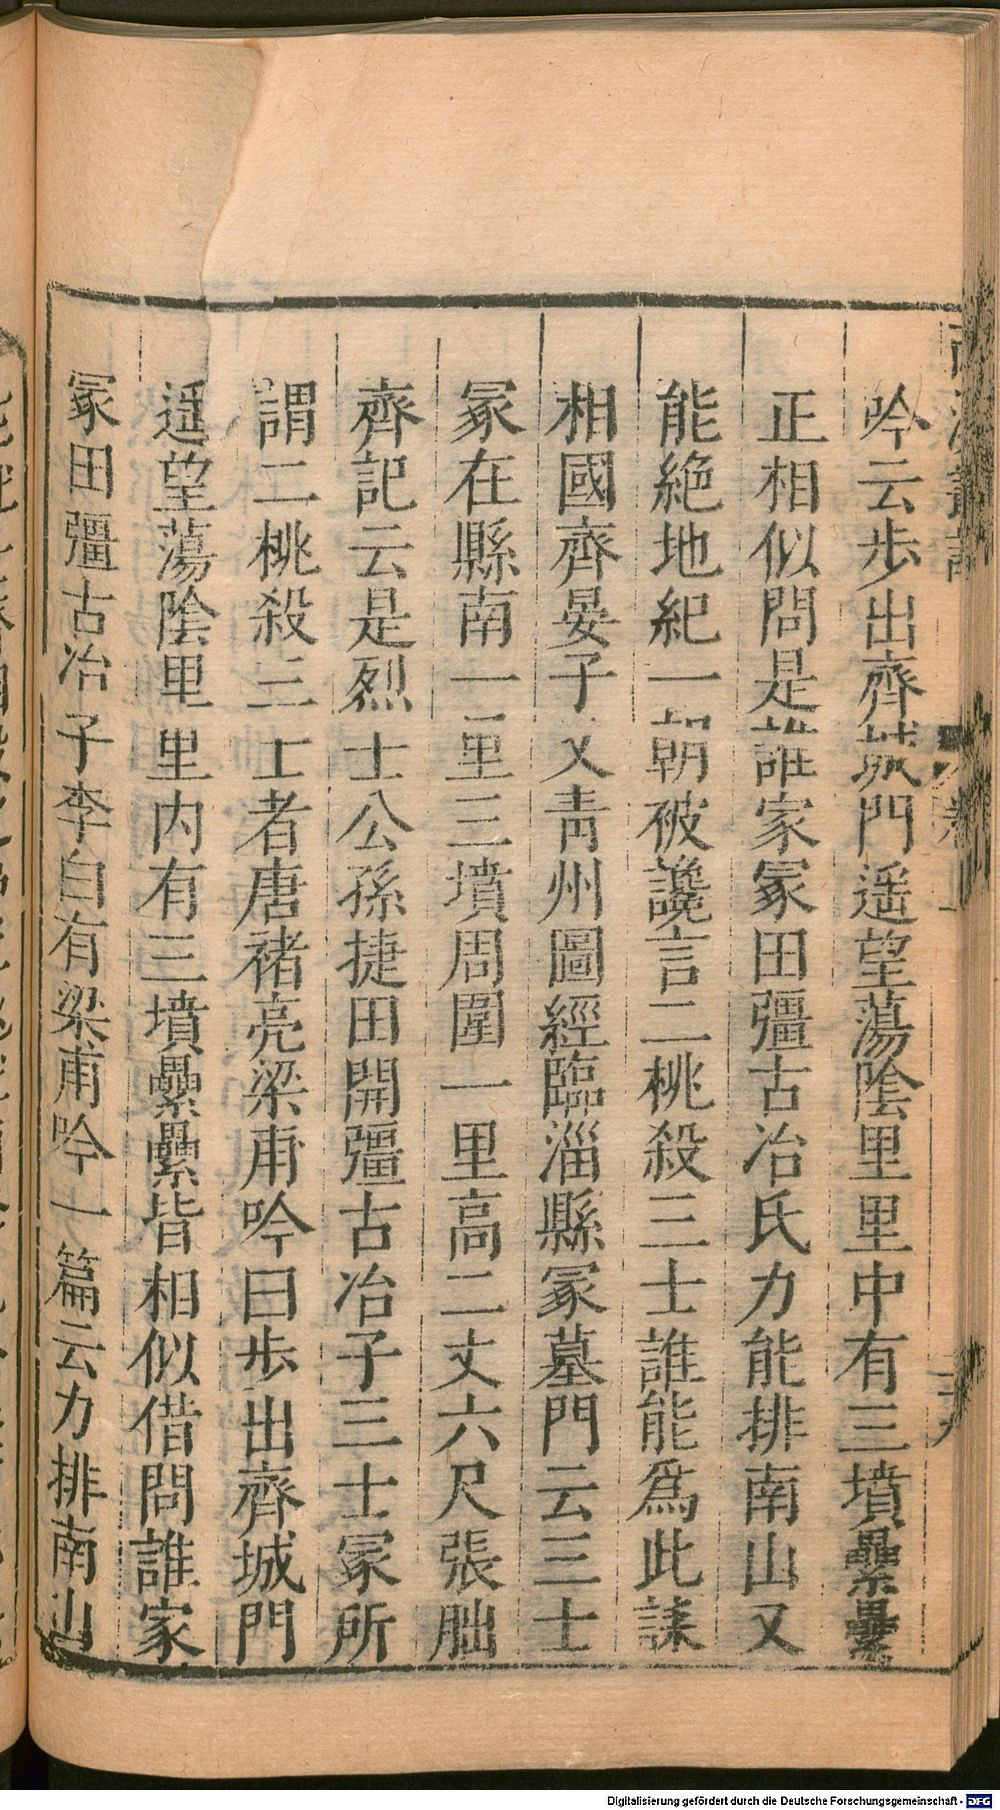 吟云步出齊城門遥望蕩陰里里中有三墳纍纍
正相似問是誰家冢田彊古冶氏力能排南山又
能絶地紀一朝破讒言二桃殺三士誰能爲此謀
相國齊晏子又靑州圖經臨淄縣冢墓門云三士
冢在縣南一里三墳周圍一里高二丈六尺張朏
齊記云是烈士公孫捷田開彊古冶子三士冢所
謂二桃殺三士者唐褚亮梁甫吟曰步出齊城門
遥望蕩陰里里内有三墳纍纍皆相似借問誰家
冢田彊古冶子李白有梁甫吟一篇云力排南山
Digitalisierung gefördert durch die Deutsche Forschungsgemeinschaft - DFG